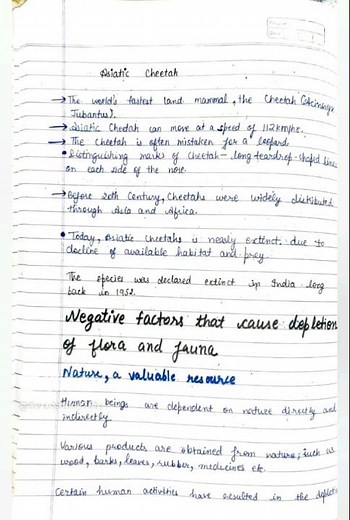 Asiatic Cheetah
→ The world's fastest land mammal, the Cheetah (Acinonyx
Jubantus).
→ Asiatic Cheetah can move at a speed of 112 km/hr.
→ The Cheetah is often mistaken for a leopard.
• Distinguishing marks of Cheetah – long teardrop-shaped lines
on each side of the nose.
→ Before 20th Century, Cheetahs were widely distributed
through Asia and Africa.
• Today, Asiatic Cheetahs is nearly extinct due to
decline of available habitat and prey.
The species was declared extinct in India long
back in 1952.
Negative factors that cause depletion
of flora and fauna
Nature, a valuable resource
Human beings are dependent on nature directly and
indirectly.
Various products are obtained from nature, such as
wood, barks, leaves, rubber, medicines etc.
Certain human activities have resulted in the